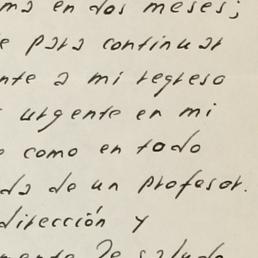 ma en dos meses;
e para continuar
nte a mi regreso
urgente en mi
o como en todo
da de un profesor.
dirección y
mente le saluda